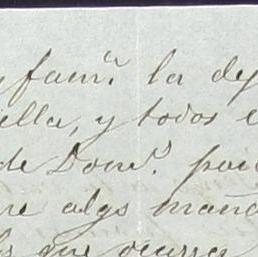 y fam.ª la de
ella, y todos e
de Dom.º pai
re algs maña
ls que ocurra